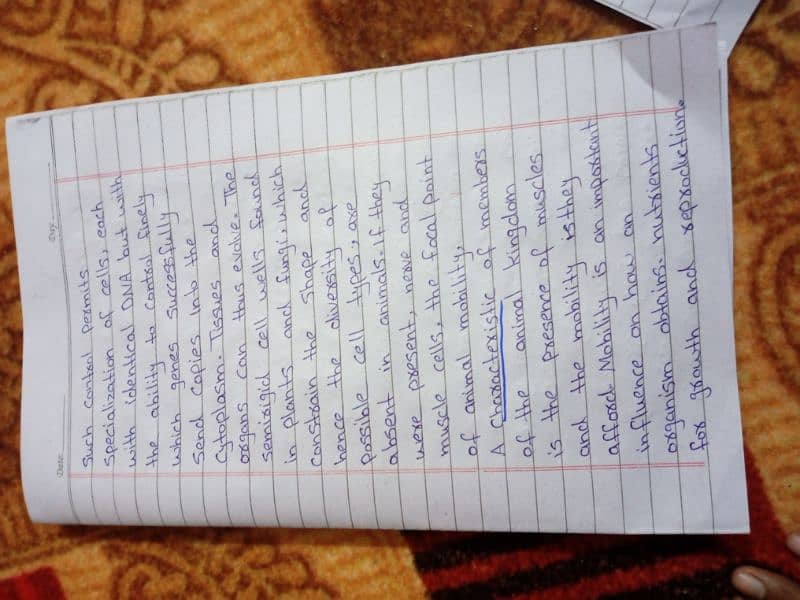 Date
Day
Such control permits
specialization of cells, each
with identical DNA but with
the ability to control finely
which genes successfully
send copies into the
cytoplasm. Tissues and
organs can thus evolve. The
semirigid cell wells found
in plants and fungi, which
constrain the shape and
hence the diversity of
possible cell types, are
absent in animals. If they
were present, nerve and
muscle cells, the focal point
of animal mobility,
A Characteristic of members
of the animal kingdom
is the presence of muscles
and the mobility is they
afford. Mobility is an important
influence on how an
organism obtains. nutrients
for growth and reproduction.